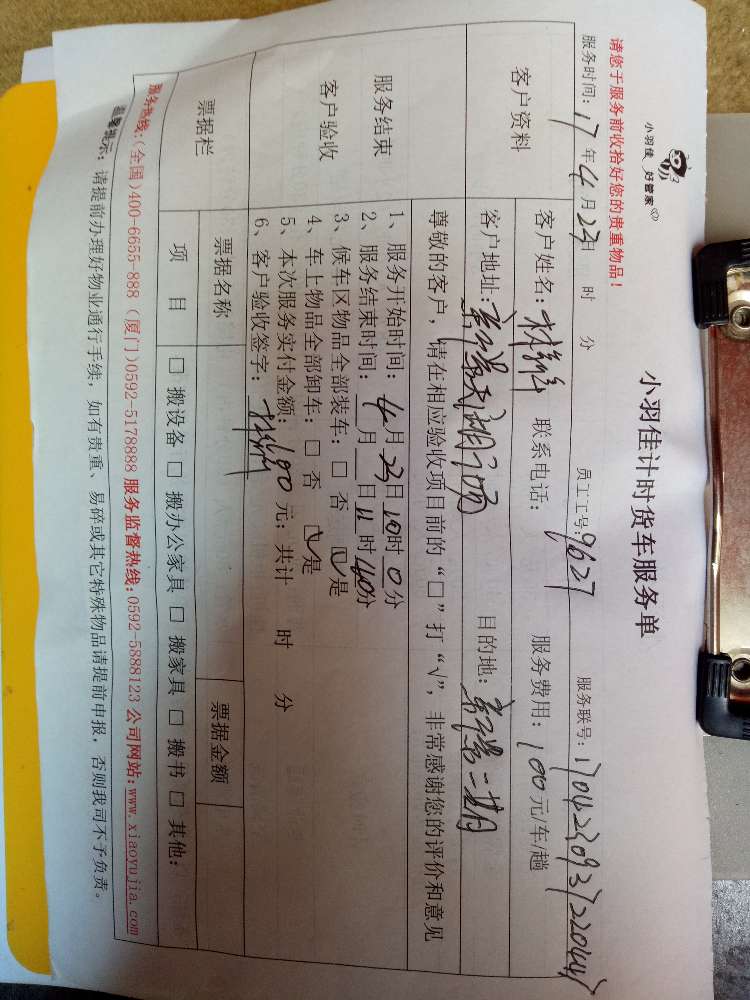 小羽佳 好管家
请您于服务前收拾好您的贵重物品！
小羽佳计时货车服务单
服务时间：17年4月23日 时 分 员工工号：9627 服务联号：
客户资料
客户姓名： 联系电话： 服务费用：100元/车/趟
客户地址： 目的地：新景二期
服务结束
客户验收
尊敬的客户，请在相应验收项目前的“□”打“√”，非常感谢您的评价和意见
1、服务开始时间：4月23日10时0分
2、服务结束时间：__月__日11时40分
3、候车区物品全部装车：□ 否 ☑是
4、车上物品全部卸车：□ 否 ☑是
5、本次服务实付金额：100元；共计 时 分
6、客户验收签字：
票据栏
票据名称 票据金额
项 目 □ 搬设备 □ 搬办公家具 □ 搬家具 □ 搬书 □ 其他：
服务热线：(全国)400-6655-888 (厦门)0592-5178888 服务监督热线：0592-5888123 公司网站：www.xiaoyujia.com
温馨提示：请提前办理好物业通行手续，如有贵重、易碎或其它特殊物品请提前申报，否则我司不予负责。